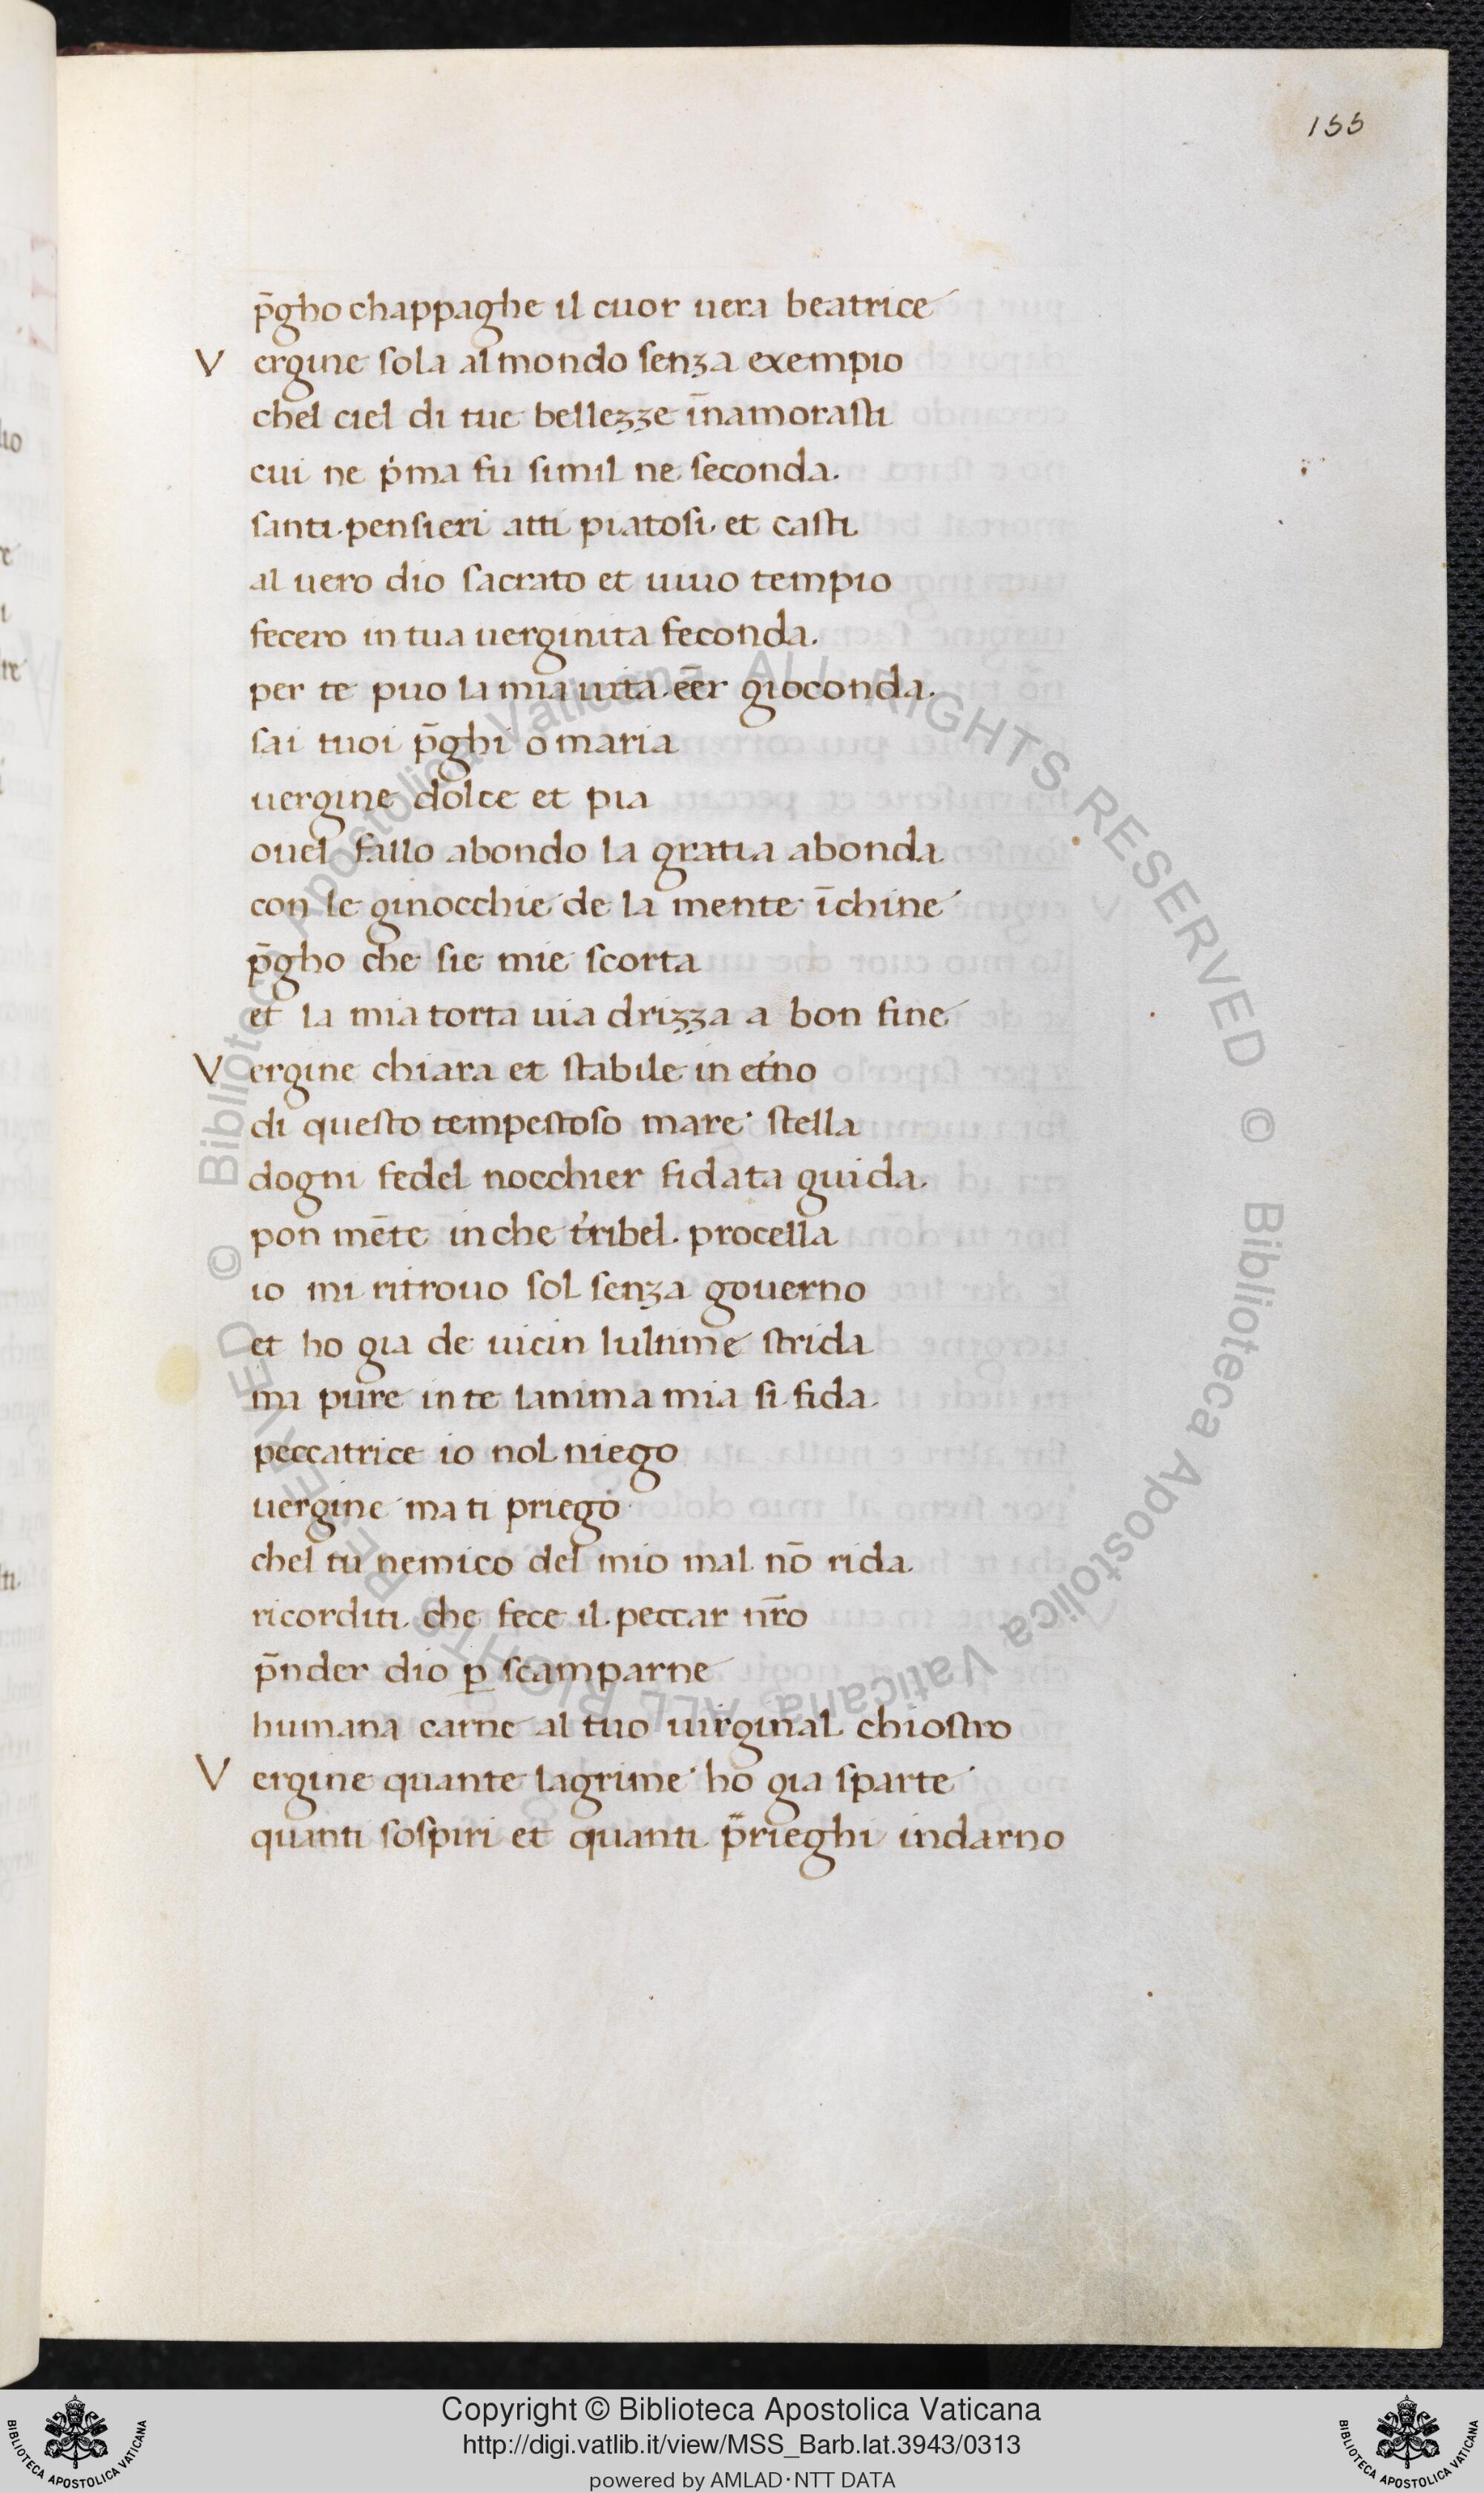 155
p̄gho chappaghe il cuor uera beatrice
V ergine sola al mondo senza exempio
chel ciel di tue bellezze īnamorasti
cui ne p̍ma fu simil ne seconda.
santi pensieri atti piatosi et casti
al uero dio sacrato et uiuo tempio
fecero in tua uerginita feconda.
per te puo la mia uita ēēr gioconda.
sai tuoi p̄ghi o maria
uergine dolce et pia
ouel fallo abondo la gratia abonda
con le ginocchie de la mente īchine
p̄gho che sie mie scorta
et la mia torta uia drizza a bon fine
V ergine chiara et stabile in et̍no
di questo tempestoso mare stella
dogni fedel nocchier fidata guida.
pon mēte in che t̍ribel procella
io mi ritrouo sol senza gouerno
et ho gia de uicin lultime strida
ma pure in te lanima mia si fida
peccatrice io nol niego
uergine ma ti priego
chel tu nemico del mio mal nō rida
ricorditi che fece il peccar nr̄o
p̄nder dio ꝑ scamparne
humana carne al tuo uirginal chiostro
V ergine quante lagrime ho gia sparte
quanti sospiri et quanti p̄rieghi indarno
© Biblioteca Apostolica Vaticana ALL RIGHTS RESERVED
© Biblioteca Apostolica Vaticana ALL RIGHTS RESERVED
Copyright © Biblioteca Apostolica Vaticana
http://digi.vatlib.it/view/MSS_Barb.lat.3943/0313
powered by AMLAD·NTT DATA
BIBLIOTECA APOSTOLICA VATICANA
BIBLIOTECA APOSTOLICA VATICANA